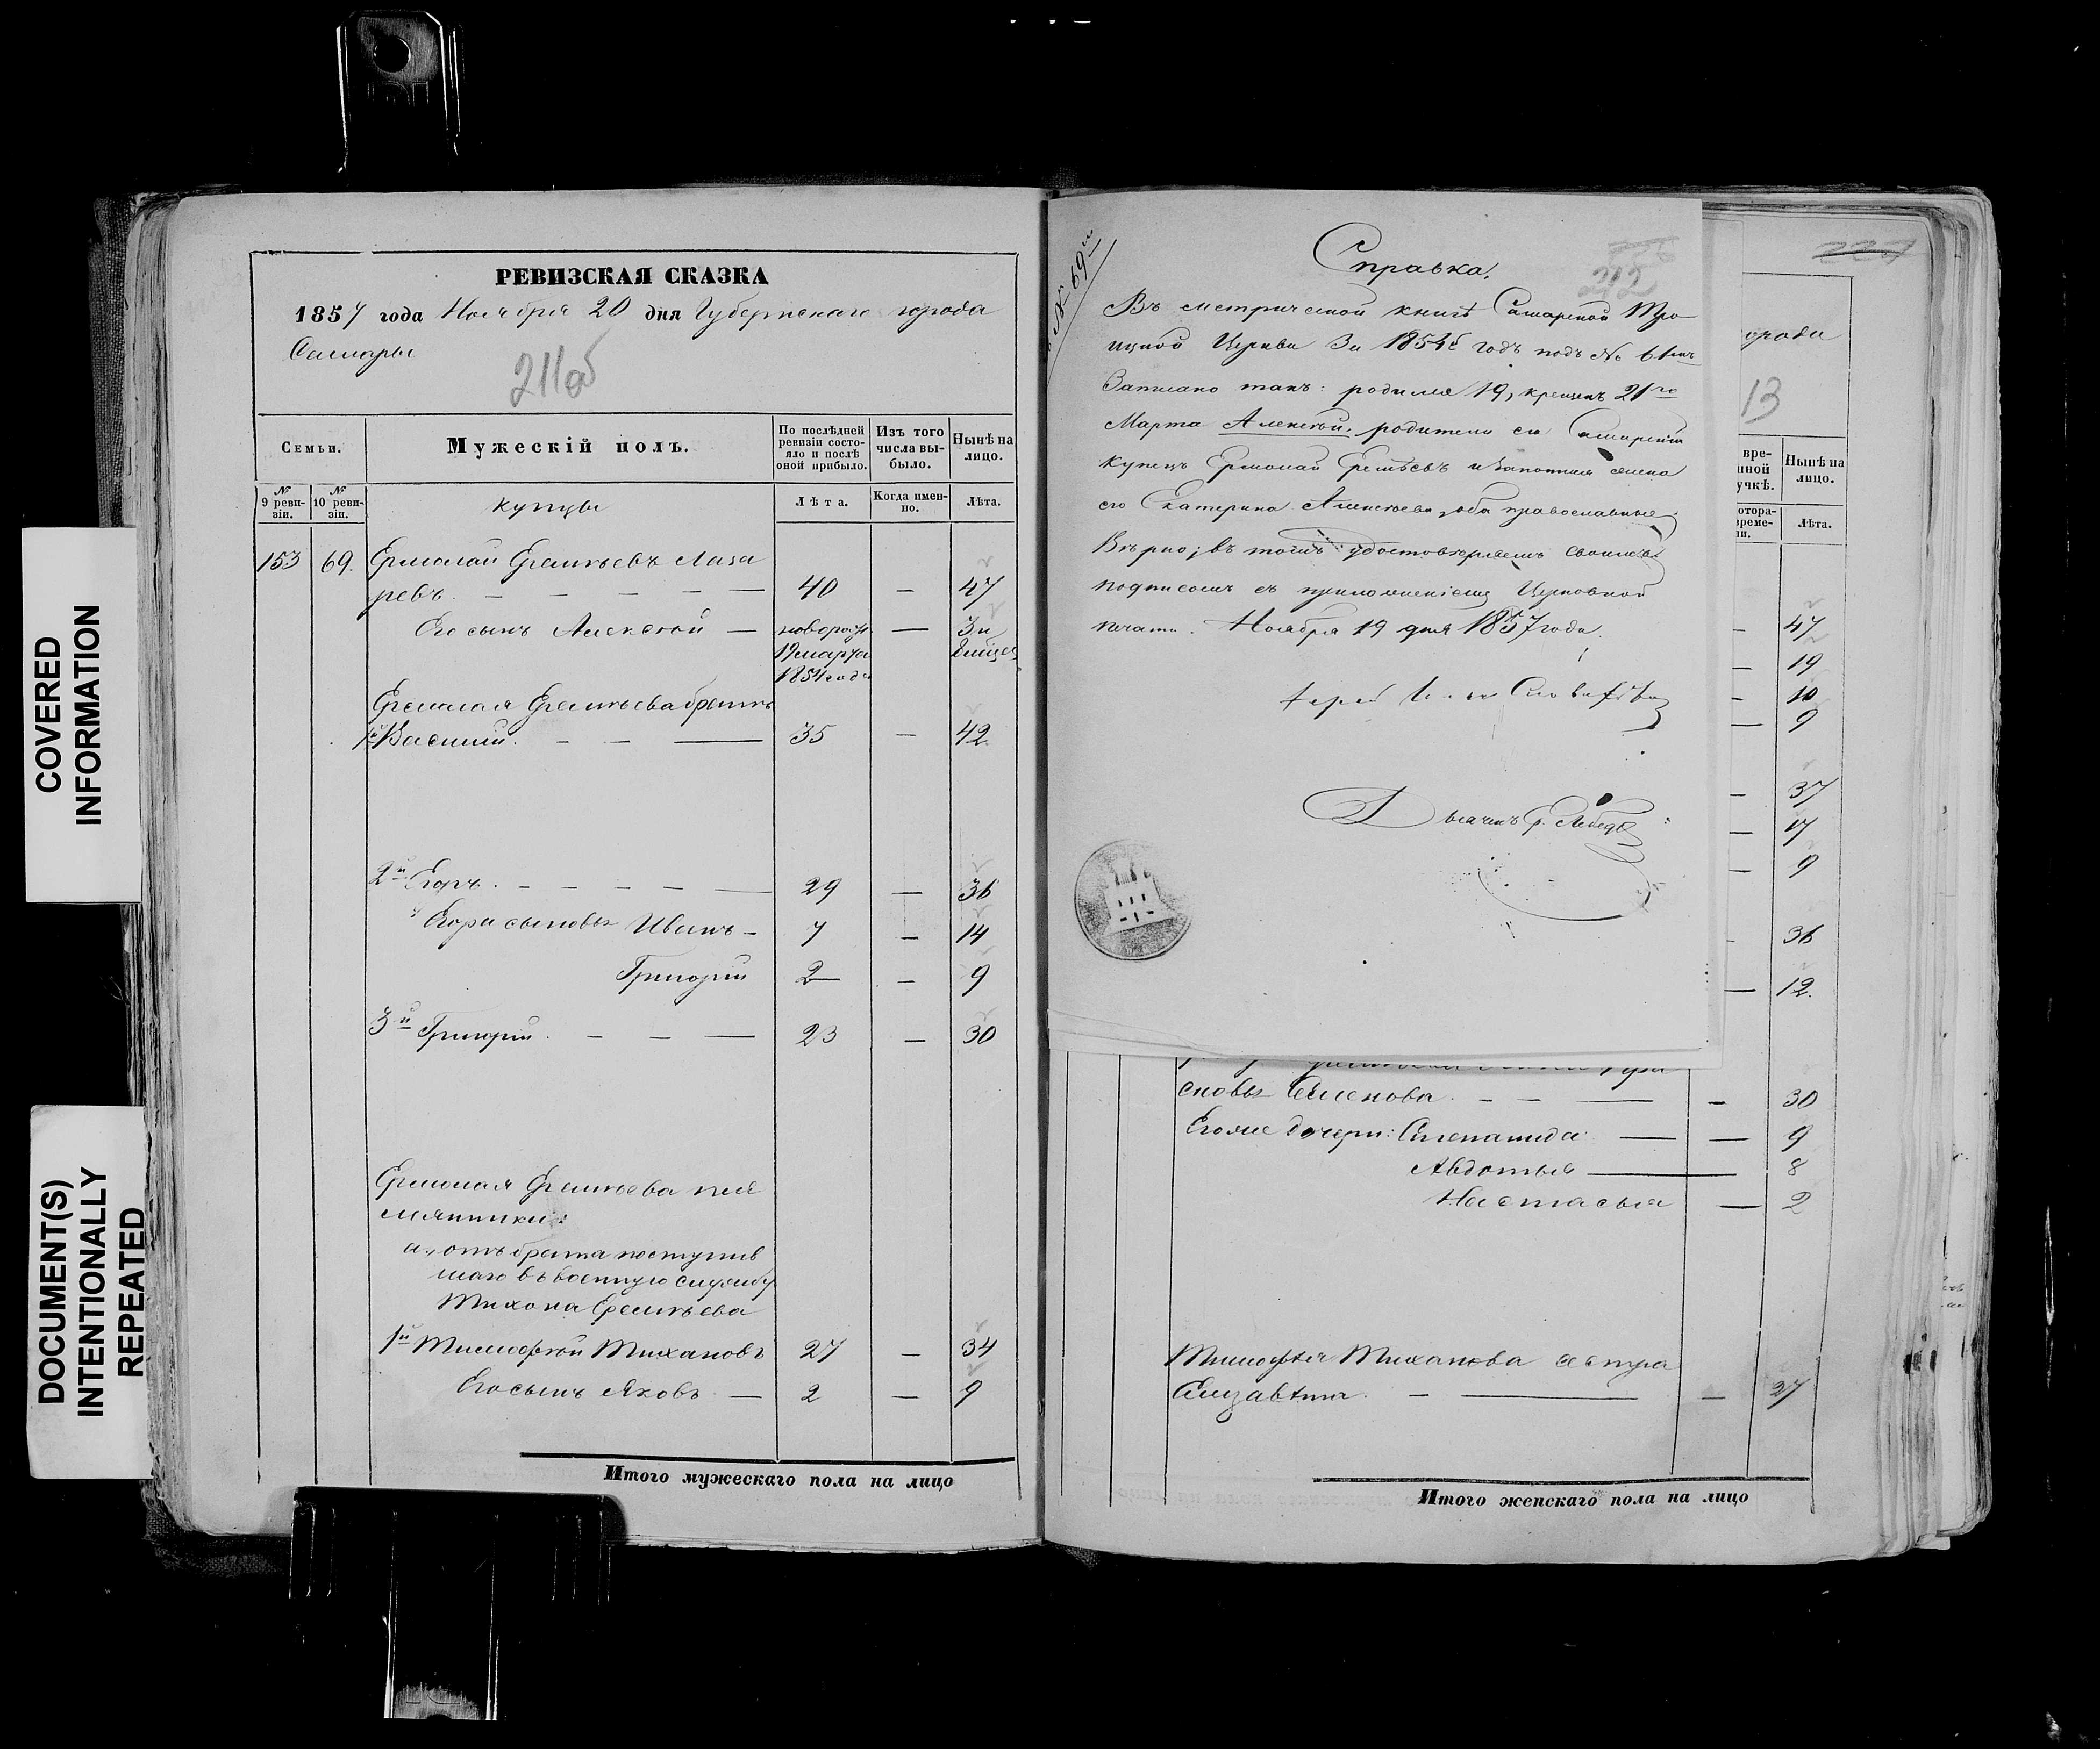 COVERED
INFORMATION
DOCUMENT(S)
INTENTIONALLY
REPEATED
РЕВИЗСКАЯ СКАЗКА
1857 года Ноября 20 дня Губернскаго города
Самары
211об
Семьи.
Мужескій полъ.
По послѣдней ревизіи состояло и послѣ оной прибыло.
Изъ того числа выбыло.
Нынѣ на лицо.
№ 9 ревизіи.
№ 10 ревизіи.
купцы
Лѣта.
Когда именно.
Лѣта.
153 69. Ермолай Еремѣевъ Лаза
ревъ. — 40 — 47
Его сынъ Алексѣй — новорож. — 3 и
19 марта 8 мѣсец
1854 года
Ермолая Еремѣева братья
1й Василий. — 35 — 42
2й Егоръ. — 29 — 36
Егора сыновья Иванъ — 7 — 14
Григорій 2 — 9
3й Григорій. — 23 — 30
Ермолая Еремѣева пле
мянники:
а., отъ брата поступив
шаго въ военную службу
Тихона Еремѣева
1й Тимофей Тихановъ 27 — 34
Его сынъ Яковъ — 2 — 9
Итого мужескаго пола на лицо
№ 69й
Справка.
212
Въ метрической книгѣ Самарской Тро
ицкой Церкви за 1854й годъ подъ № 61мъ
Записано такъ: родился 19, крещенъ 21го
Марта Алексѣй. родители его Самарскій
купецъ Ермолай Еремѣевъ и законная жена
его Екатерина Алексѣева, оба православные.
Вѣрно; въ томъ удостовѣряемъ своимъ
подписомъ съ приложеніемъ Церковной
печати. Ноября 19 дня 1857 года.
Дьячекъ
227
орода
13
вре-
нной
учкѣ.
Нынѣ на
лицо.
отора-
време-
ни.
Лѣта.
— 47
— 19
— 10
— 9
— 37
— 17
— 9
— 36
— 12.
сновья Семенова. — — 30
Его же дочери: Степанида — — 9
Авдотья — 8
Настасья — 2
Тимофея Тиханова сестра
Елизавѣта. — — 27
Итого женскаго пола на лицо